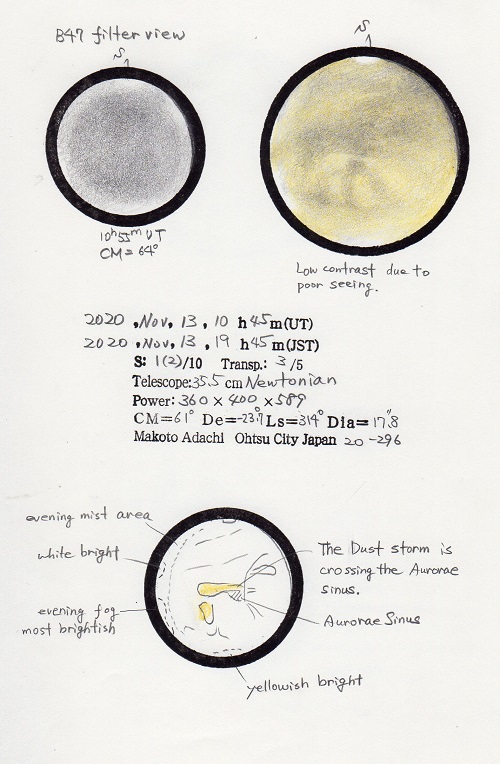 B47 filter view
S
S
10h55m UT
CM=64°
Low contrast due to
poor seeing.
2020 ,Nov, 13 , 10 h 45 m(UT)
2020 ,Nov, 13 , 19 h 45 m(JST)
S: 1(2)/10 Transp.: 3 /5
Telescope:35.5 cm Newtonian
Power: 360 × 400 × 589
CM=61° De=-23.7 Ls=314° Dia=17".8
Makoto Adachi Ohtsu City Japan 20-296
evening mist area
white bright
evening fog
most brightish
The Dust storm is
crossing the Aurorae
sinus.
Aurorae Sinus
yellowish bright